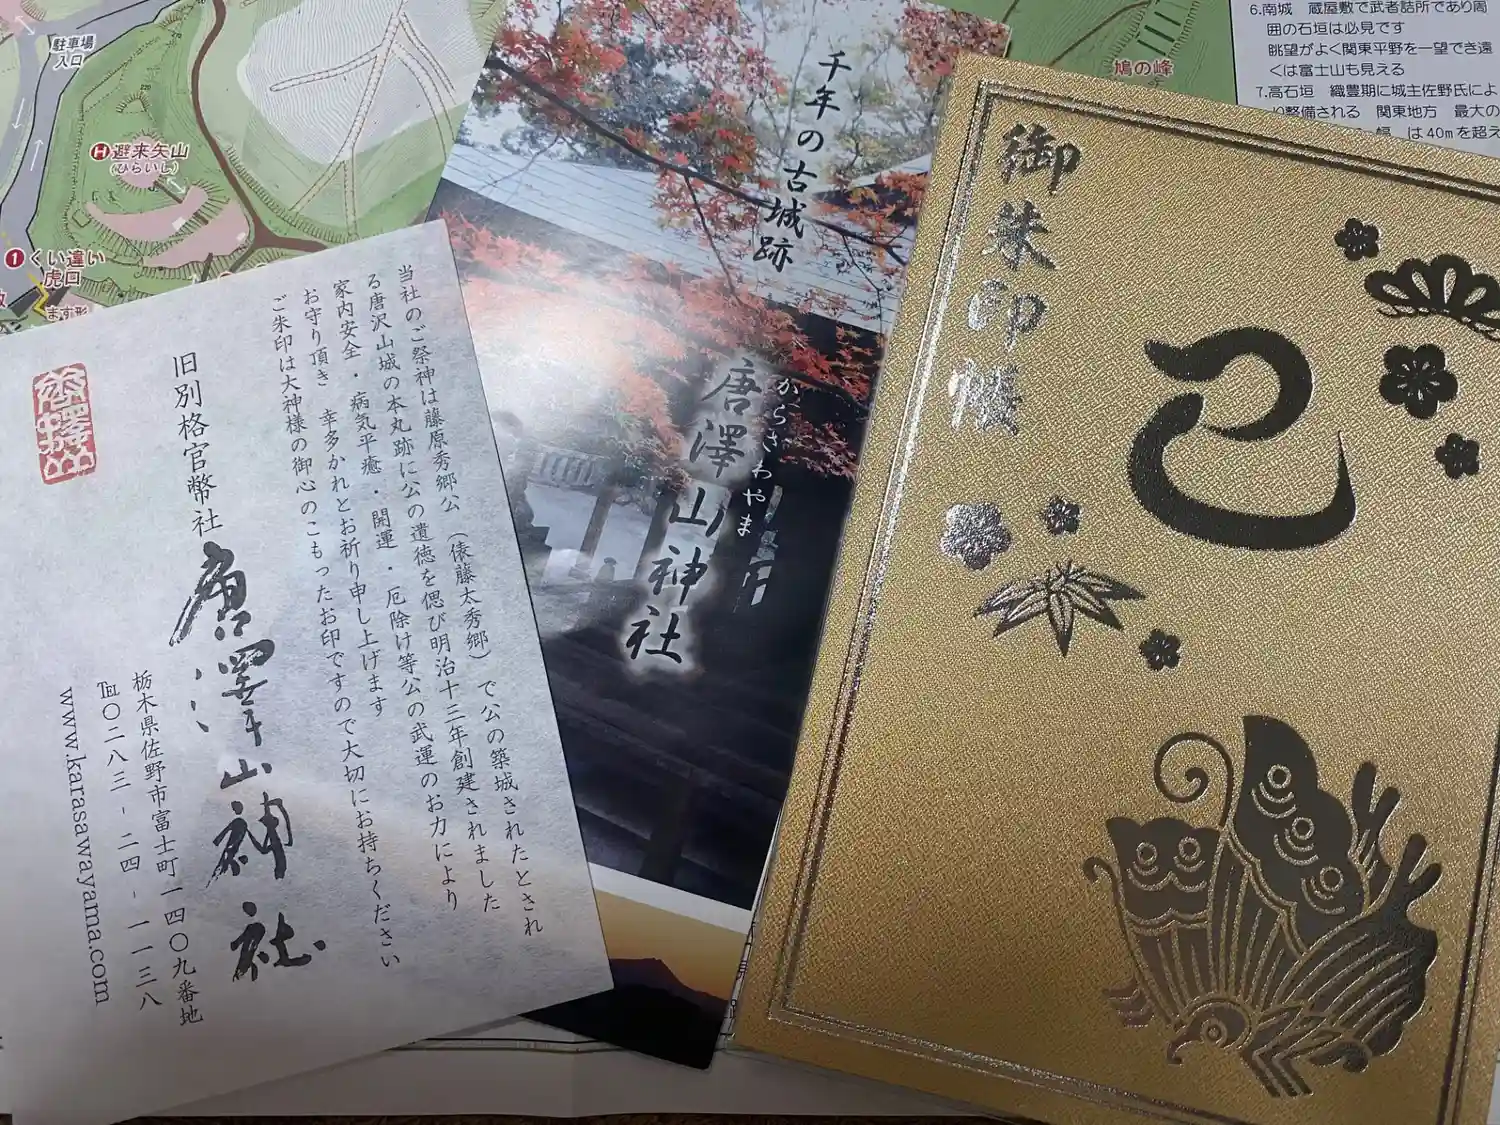 駐車場
入口
H 避来矢山
(ひらいし)
1 くい違い
虎口
ます形
鳩の峰
6.南城 蔵屋敷で武者詰所であり周
囲の石垣は必見です
眺望がよく関東平野を一望でき遠
くは富士山も見える
7.高石垣 織豊期に城主佐野氏によ
り整備される 関東地方 最大の
幅 は40mを超え
千年の古城跡
からさわやま
唐澤山神社
御朱印帳
己
当社のご祭神は藤原秀郷公(俵藤太秀郷)で公の築城されたとされ
る唐沢山城の本丸跡に公の遺徳を偲び明治十三年創建されました
家内安全・病気平癒・開運・厄除け等公の武運のお力により
お守り頂き 幸多かれとお祈り申し上げます
ご朱印は大神様の御心のこもったお印ですので大切にお持ちください
旧別格官幣社
唐澤山神社
栃木県佐野市富士町一四〇九番地
℡〇二八三-二四-一一三八
www.karasawayama.com